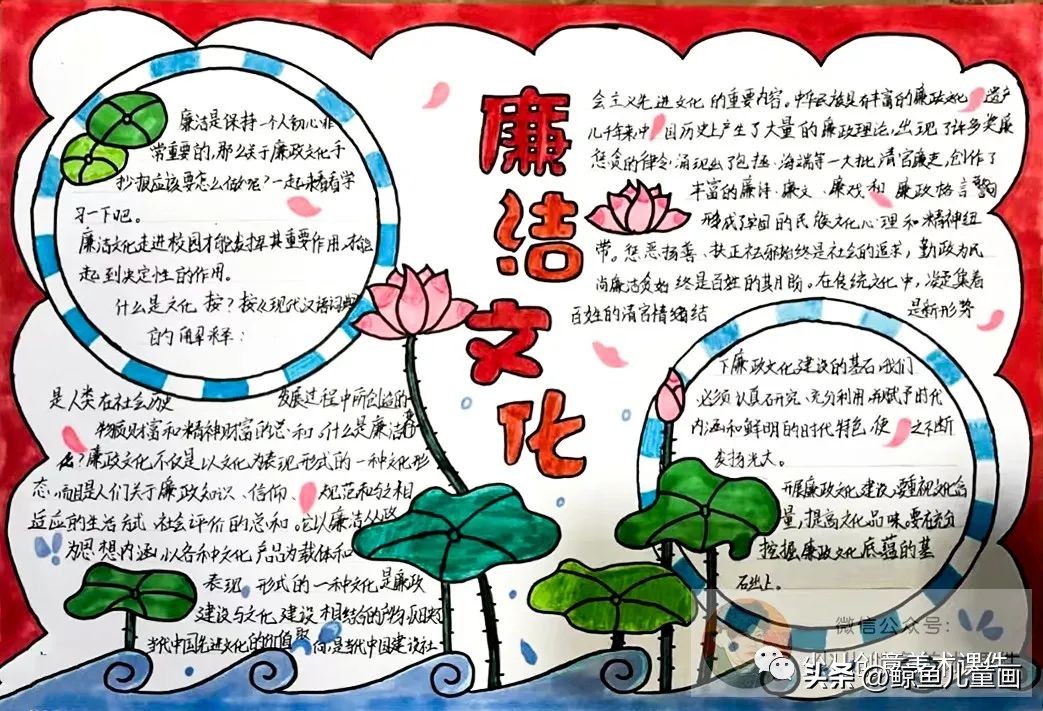 廉洁文化
廉洁是保持一个人初心非
常重要的,那么关于廉政文化手
抄报应该要怎么做呢?一起来看看学
习一下吧。
廉洁文化走进校园才能发挥其重要作用,才能
起到决定性的作用。
什么是文化 按?按《现代汉语词典
的解释:
是人类在社会历史 发展过程中所创造的
物质财富和精神财富的总和。什么是廉洁
化?廉政文化不仅是以文化为表现形式的一种文化形
态,而且是人们关于廉政知识、信仰、规范和与之相
适应的生活方式 社会评价的总和。它以廉洁从政
为思想内涵,以各种文化产品为载体和
表现 形式的一种文化是廉政
建设与文化建设相结合的产物
当代中国先进文化的价值 向,是当代中国建设社
会主义先进文化的重要内容。中华民族具有丰富的廉政文化 遗产
几千年来中国历史上产生了大量的廉政理法,出现了许多奖廉
惩贪的律令,涌现出了包拯、海瑞等一大批清官廉吏,创作了
丰富的廉诗、廉文、廉戏和 廉政格言警句
形成了牢固的民族文化心理和精神纽
带。惩恶扬善、扶正祛邪始终是社会的追求,勤政为民
尚廉洁贪始终是百姓的期盼。在传统文化中,凝聚着
百姓的清官情绪结 是新形势
下廉政文化建设的基石,我们
必须认真石研究、充分利用,并赋予时代
内涵和鲜明的时代特色,使 之不断
发扬光大。
开展廉政文化建设,要重视文化含
量,提高文化品味。要在充分
挖掘廉政文化底蕴的基
石出上。
微信公众号:
创意美术课件
头条 @鲸鱼儿童画